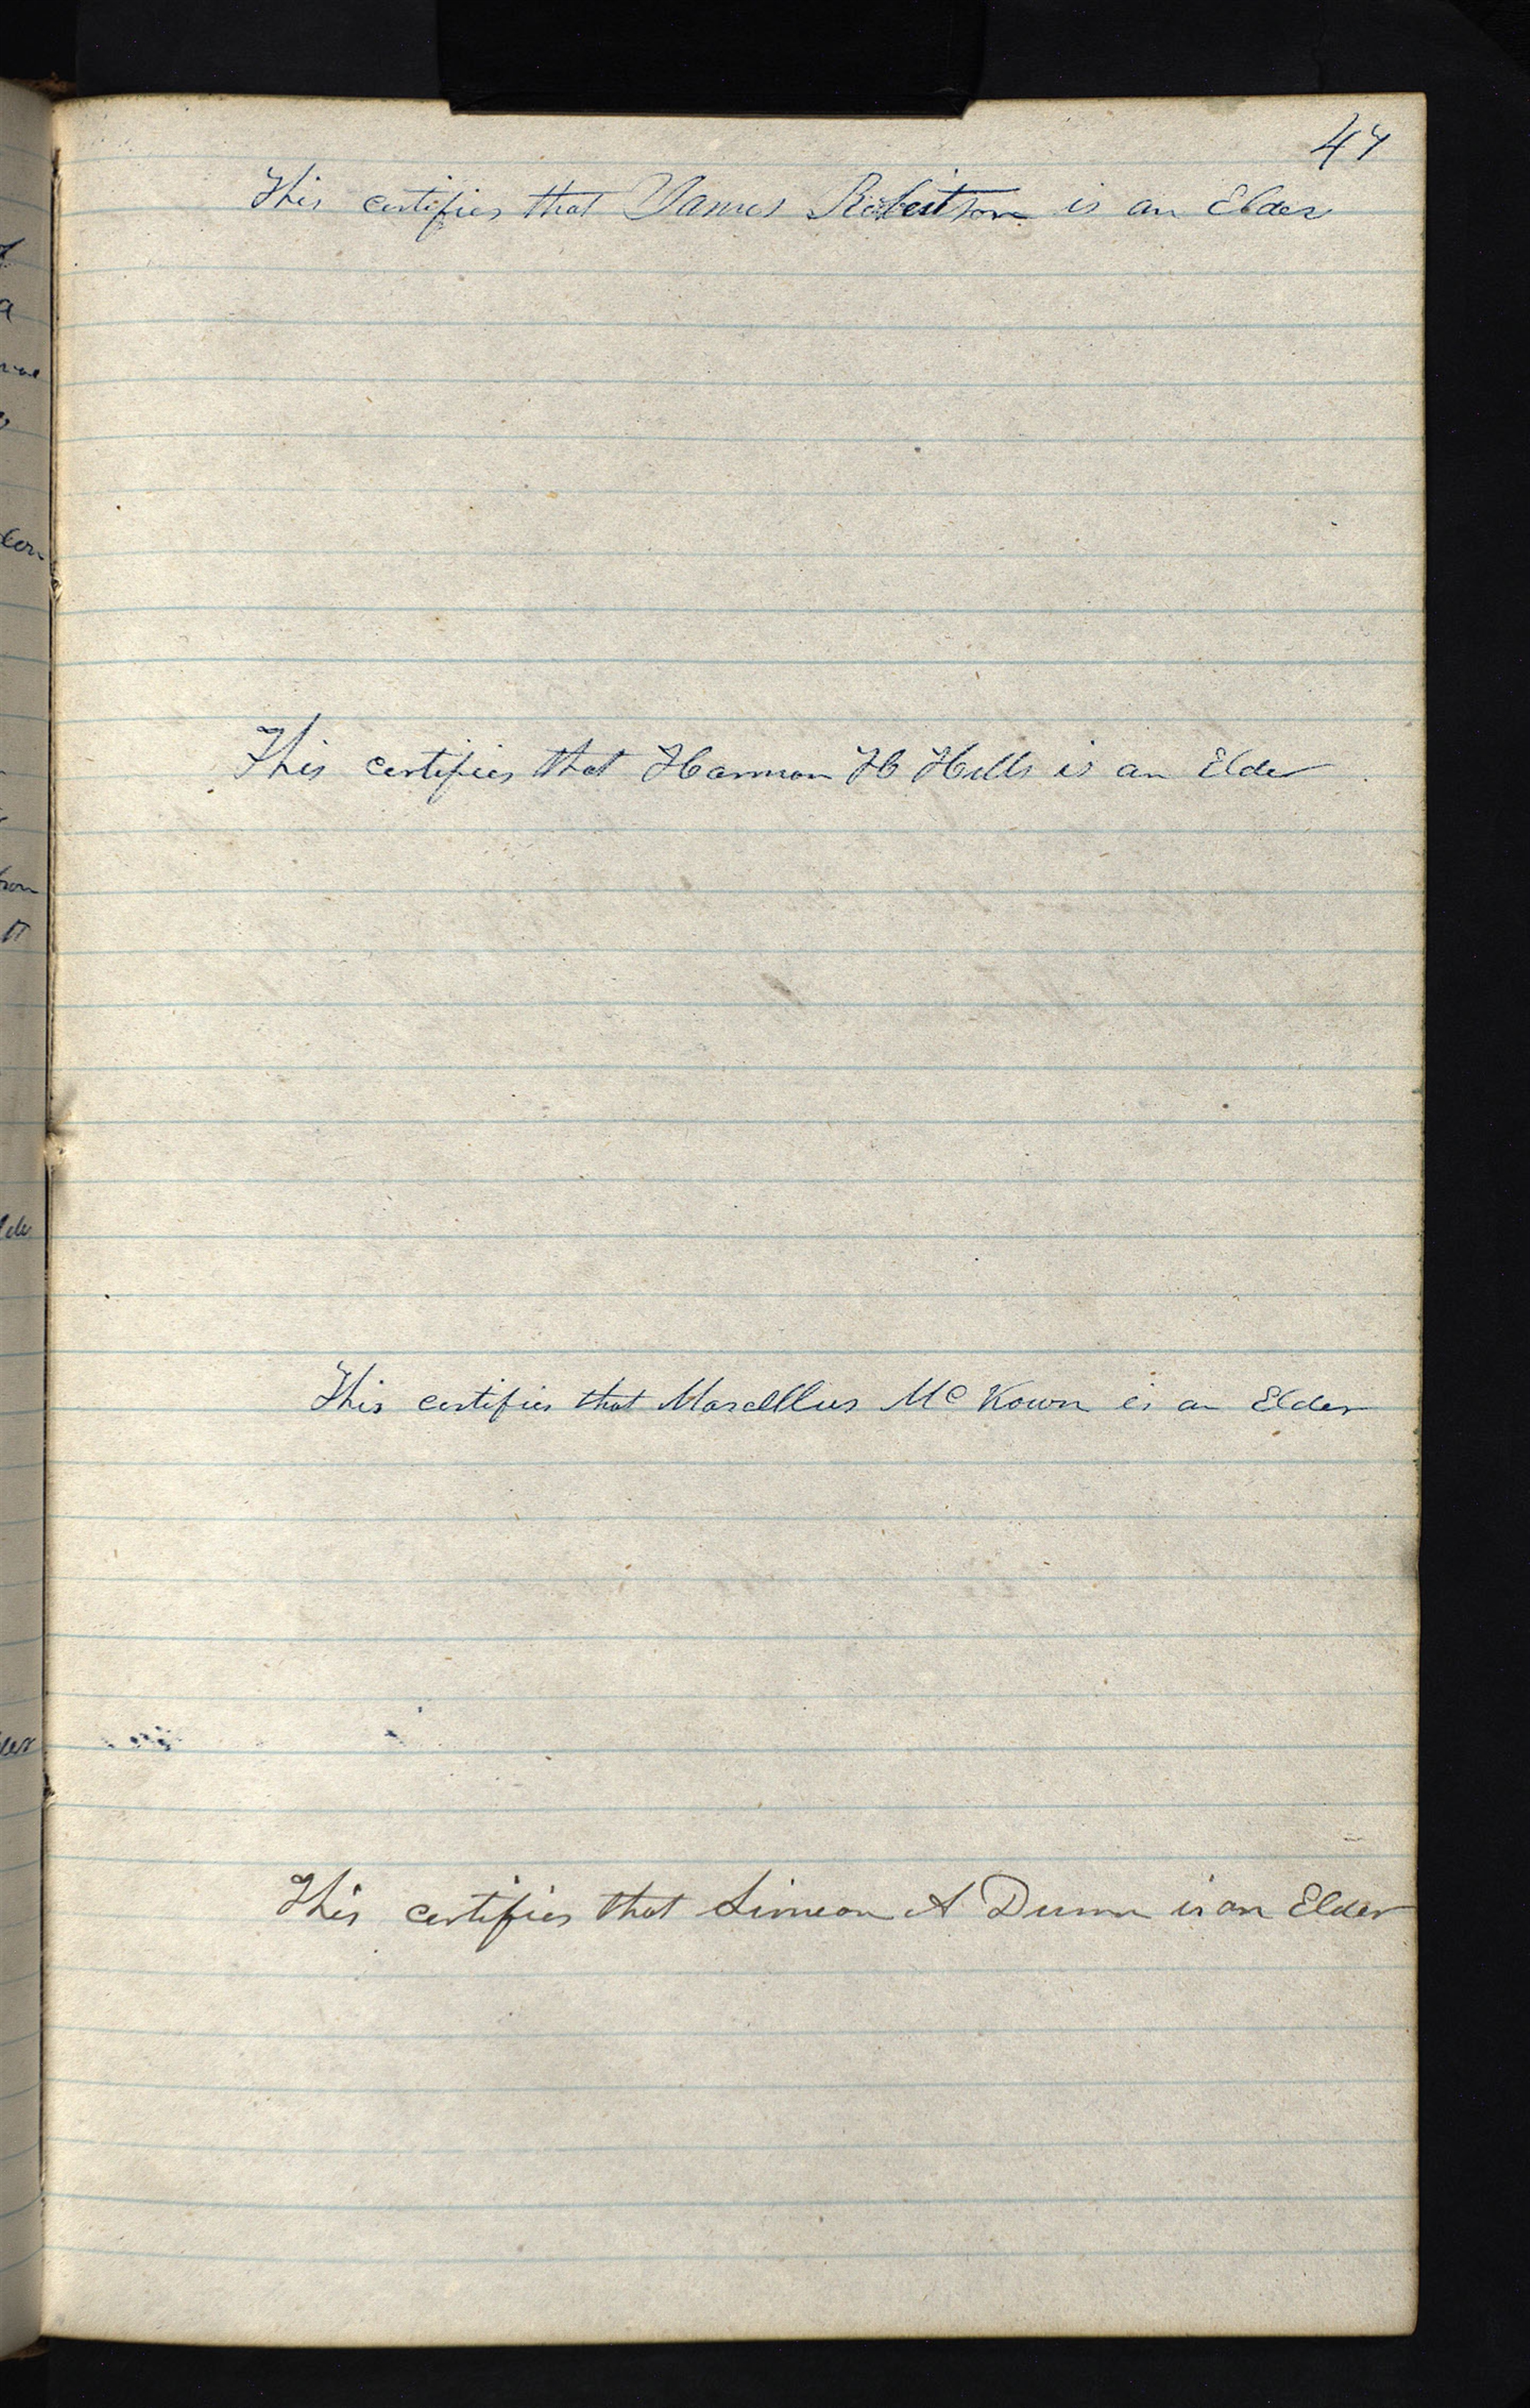 47
This certifies that James Robertson is an Elder
This certifies that Harmon H Hills is an Elder
This certifies that Marcelllus Mc Kown is an Elder
This certifies that Simeon A Dunn is an Elder